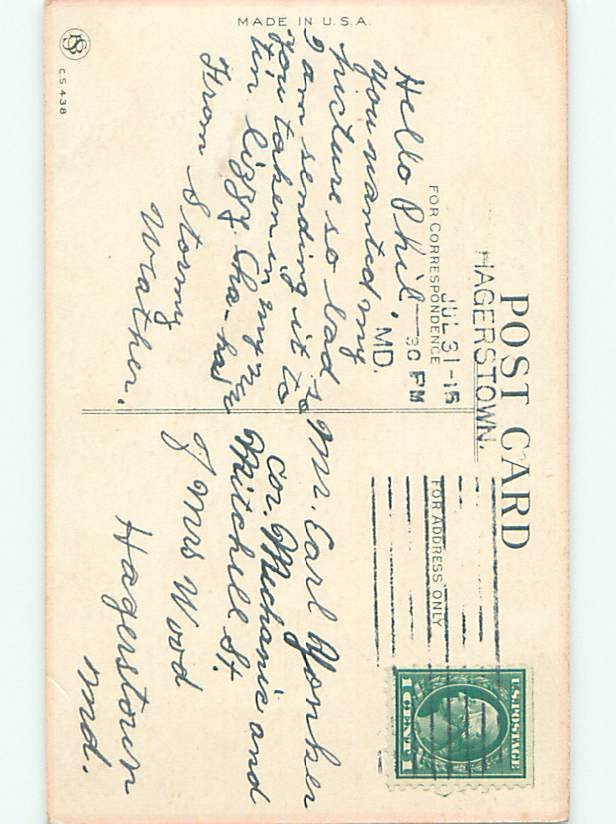 POST CARD
HAGERSTOWN,
MD.
JUL 31-15
30 PM
FOR CORRESPONDENCE
FOR ADDRESS ONLY
U.S. POSTAGE
1 CENT 1
Hello Phil,
You wanted my
picture so bad so
I am sending it to
you taken in my
tin lizzy Cha-ha
From Stormy
Weather.
Mr. Earl Yonker
Cor. Mechanic and
Mitchell St.
% Mrs Wood
Hagerstown
Md.
MADE IN U.S.A.
C.S 438